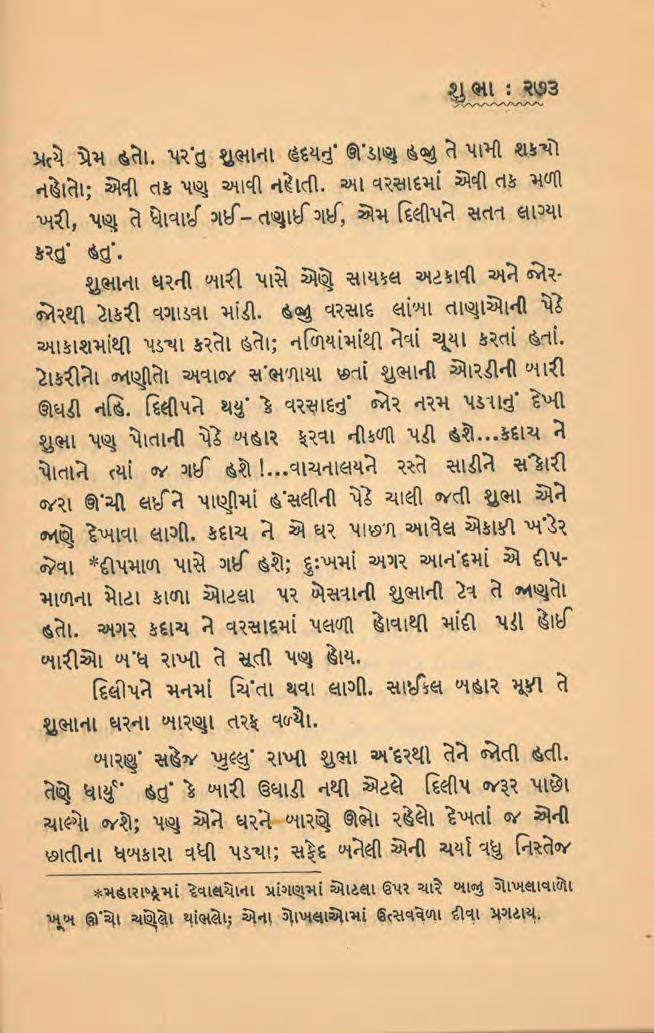 શુભા : ૨૭૩
પ્રત્યે પ્રેમ હતો. પરંતુ શુભાના હૃદયનું ઊંડાણ હજુ તે પામી શકચો
નહોતો; એવી તક પણ આવી નહોતી. આ વરસાદમાં એવી તક મળી
ખરી, પણ તે ધોવાઈ ગઈ – તણાઈ ગઈ, એમ દિલીપને સતત લાગ્યા
કરતું હતું.
શુભાના ઘરની બારી પાસે એણે સાયકલ અટકાવી અને જોર-
જોરથી ટોકરી વગાડવા માંડી. હજુ વરસાદ લાંબા તાણાઓની પેઠે
આકાશમાંથી પડચા કરતો હતો; નળિયાંમાંથી નેવાં ચૂયા કરતાં હતાં.
ટોકરીનો જાણીતો અવાજ સંભળાયા છતાં શુભાની ઓરડીની બારી
ઊઘડી નહિ. દિલીપને થયું કે વરસાદનું જોર નરમ પડવાનું દેખી
શુભા પણ પોતાની પેઠે બહાર ફરવા નીકળી પડી હશે...કદાચ ને
પોતાને ત્યાં જ ગઈ હશે !...વાચનાલયને રસ્તે સાડીને સંકોરી
જરા ઊંચી લઈને પાણીમાં હંસલીની પેઠે ચાલી જતી શુભા એને
જાણે દેખાવા લાગી. કદાચ ને એ ઘર પાછળ આવેલ એકાકી ખંડેર
જેવા *દીપમાળ પાસે ગઈ હશે; દુઃખમાં અગર આનંદમાં એ દીપ-
માળના મોટા કાળા ઓટલા પર બેસવાની શુભાની ટેવ તે જાણતો
હતો. અગર કદાચ ને વરસાદમાં પલળી હોવાથી માંદી પડી હોઈ
બારીઓ બંધ રાખી તે સૂતી પણ હોય.
દિલીપને મનમાં ચિંતા થવા લાગી. સાઈકલ બહાર મૂકી તે
શુભાના ઘરના બારણા તરફ વળ્યો.
બારણું સહેજ ખુલ્લું રાખી શુભા અંદરથી તેને જોતી હતી.
તેણે ધાર્યું હતું કે બારી ઉઘાડી નથી એટલે દિલીપ જરૂર પાછો
ચાલ્યો જશે; પણ એને ઘરને બારણે ઊભો રહેલો દેખતાં જ એની
છાતીના ધબકારા વધી પડચા; સફેદ બનેલી એની ચર્યા વધુ નિસ્તેજ
*મહારાષ્ટ્રમાં દેવાલયોના પ્રાંગણમાં ઓટલા ઉપર ચારે બાજુ ગોખલાવાળો
ખૂબ ઊંચો ચણેલો થાંભલો; એના ગોખલાઓમાં ઉત્સવવેળા દીવા પ્રગટાય.